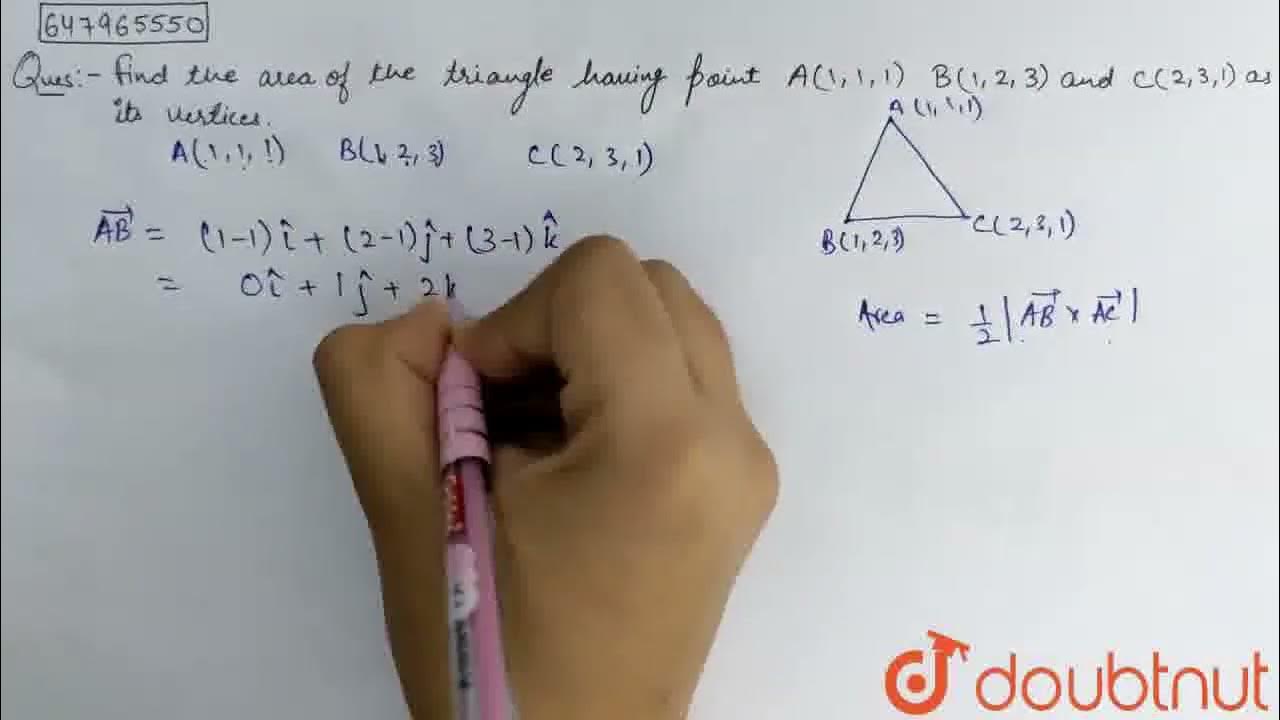 647965550
Ques:- Find the area of the triangle having point A(1,1,1) B(1,2,3) and C(2,3,1) as
its vertices.
A(1,1,1) B(1,2,3) C(2,3,1)
A(1,1,1)
B(1,2,3) C(2,3,1)
→AB = (1-1)î + (2-1)ĵ + (3-1)k̂
= 0î + 1ĵ + 2k
Area = 1/2 |→AB × →AC|
doubtnut